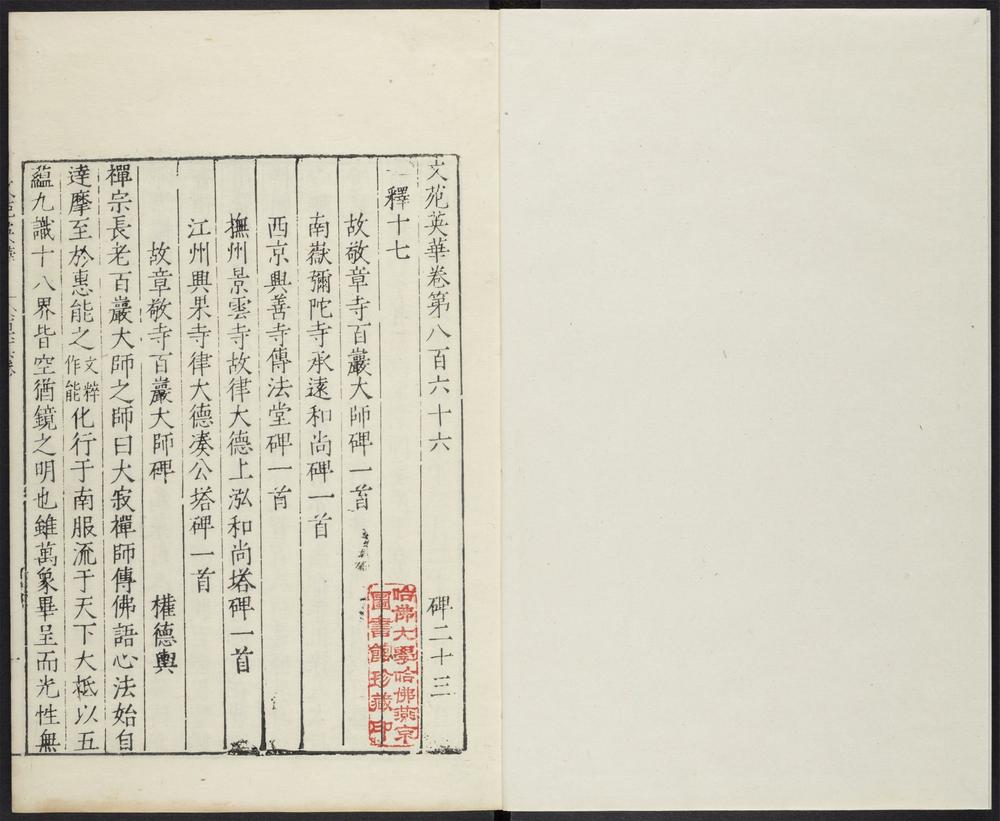 文苑英華卷第八百六十六　碑二十三
釋十七
故敬章寺百巖大師碑一首
南嶽彌陀寺承遠和尚碑一首
西京興善寺傳法堂碑一首
撫州景雲寺故律大德上泓和尚塔碑一首
江州興果寺律大德湊公塔碑一首
故章敬寺百巖大師碑　權德輿
禪宗長老百巖大師之師曰大寂禪師傳佛語心法始自
達摩至於惠能之文粹作能化行于南服流于天下大抵以五
蘊九識十八界皆空猶鏡之明也雖萬象畢呈而光性無
哈佛大學哈佛燕京
圖書館珍藏印